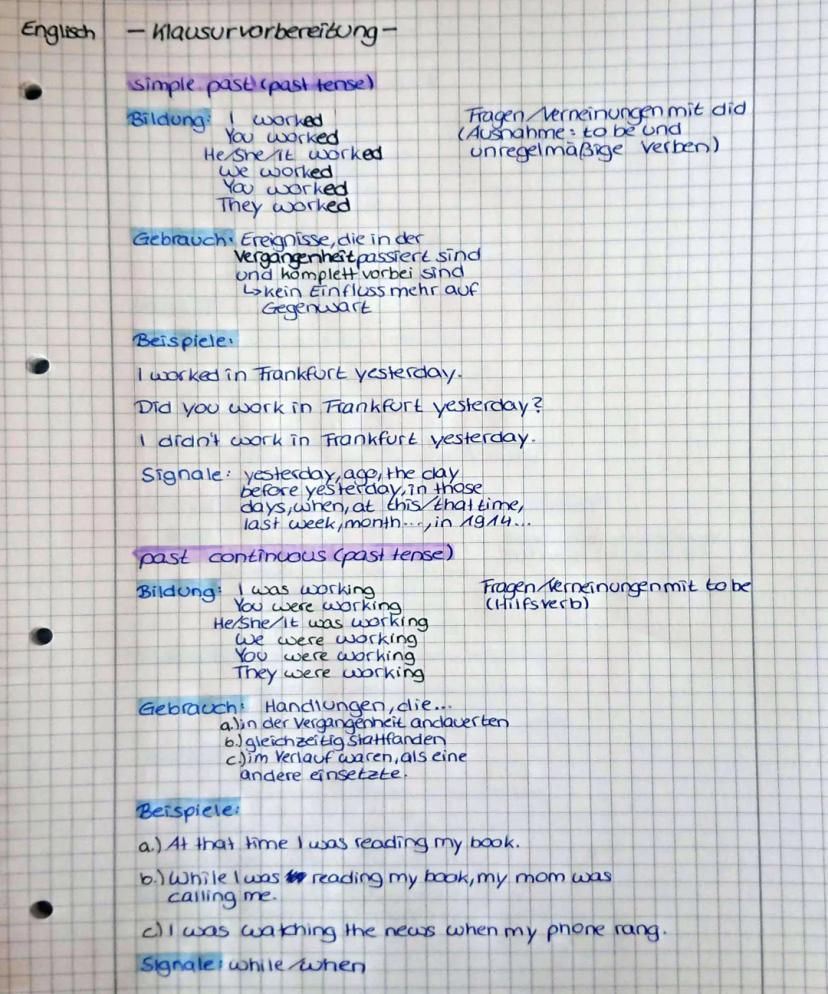 Englisch - Klausurvorbereitung -
simple past (past tense)
Bildung: I worked
You worked
He/She/it worked
We worked
You worked
They worked
Fragen/Verneinungen mit did
(Ausnahme: to be und
unregelmäßige Verben)
Gebrauch: Ereignisse, die in der
Vergangenheit passiert sind
und komplett vorbei sind
↳ kein Einfluss mehr auf
Gegenwart
Beispiele:
I worked in Frankfurt yesterday.
Did you work in Frankfurt yesterday?
I didn't work in Frankfurt yesterday.
Signale: yesterday, ago, the day
before yesterday, in those
days, when, at this/that time,
last week, month..., in 1914...
past continuous (past tense)
Bildung: I was working
You were working
He/She/It was working
We were working
You were working
They were working
Fragen/Verneinungen mit to be
(Hilfsverb)
Gebrauch: Handlungen, die...
a.) in der Vergangenheit andauerten
b.) gleichzeitig stattfanden
c.) im Verlauf waren, als eine
andere einsetzte.
Beispiele:
a.) At that time I was reading my book.
b.) While I was reading my book, my mom was
calling me.
c) I was watching the news when my phone rang.
Signale: while/when